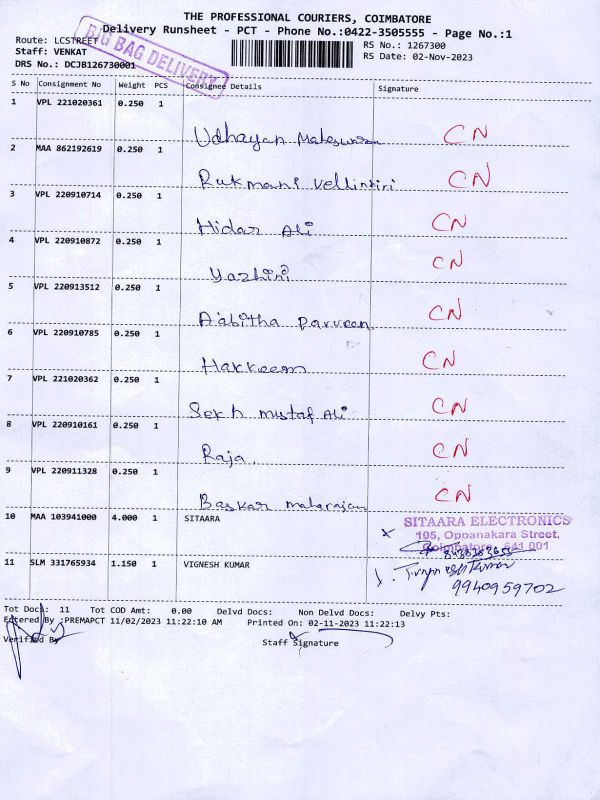 THE PROFESSIONAL COURIERS, COIMBATORE
Delivery Runsheet - PCT - Phone No.:0422-3505555 - Page No.:1
Route: LCSTREET
RS No.: 1267300
Staff: VENKAT
RS Date: 02-Nov-2023
DRS No.: DCJB126730001
BIG BAG DELIVERY
S No Consignment No Weight PCS Consignee Details Signature
1 VPL 221020361 0.250 1
Udhayan Maheswaran CN
2 MAA 862192619 0.250 1
Rukmani Vellingiri CN
3 VPL 220910714 0.250 1
Hidar Ali CN
4 VPL 220910872 0.250 1
Yazhini CN
5 VPL 220913512 0.250 1
Aabitha Parveen CN
6 VPL 220910785 0.250 1
Hakkeem CN
7 VPL 221020362 0.250 1
Sekh mustaf Ali CN
8 VPL 220910161 0.250 1
Raja. CN
9 VPL 220911328 0.250 1
Baskar maharajan CN
10 MAA 103941000 4.000 1 SITAARA
SITAARA ELECTRONICS
105, Oppanakara Street,
Coimbatore - 641 001
11 SLM 331765934 1.150 1 VIGNESH KUMAR
9940959702
Tot Docs: 11 Tot COD Amt: 0.00 Delvd Docs: Non Delvd Docs: Delvy Pts:
Entered By :PREMAPCT 11/02/2023 11:22:10 AM Printed On: 02-11-2023 11:22:13
Verified By Staff Signature